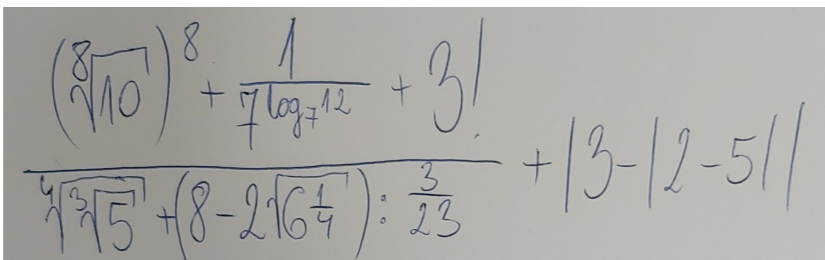 (⁸√10)⁸ + 1/7^(log₇12) + 3!
⁴√³√5 + (8 - 2√6 1/4) : 3/23 + |3 - |2 - 5||